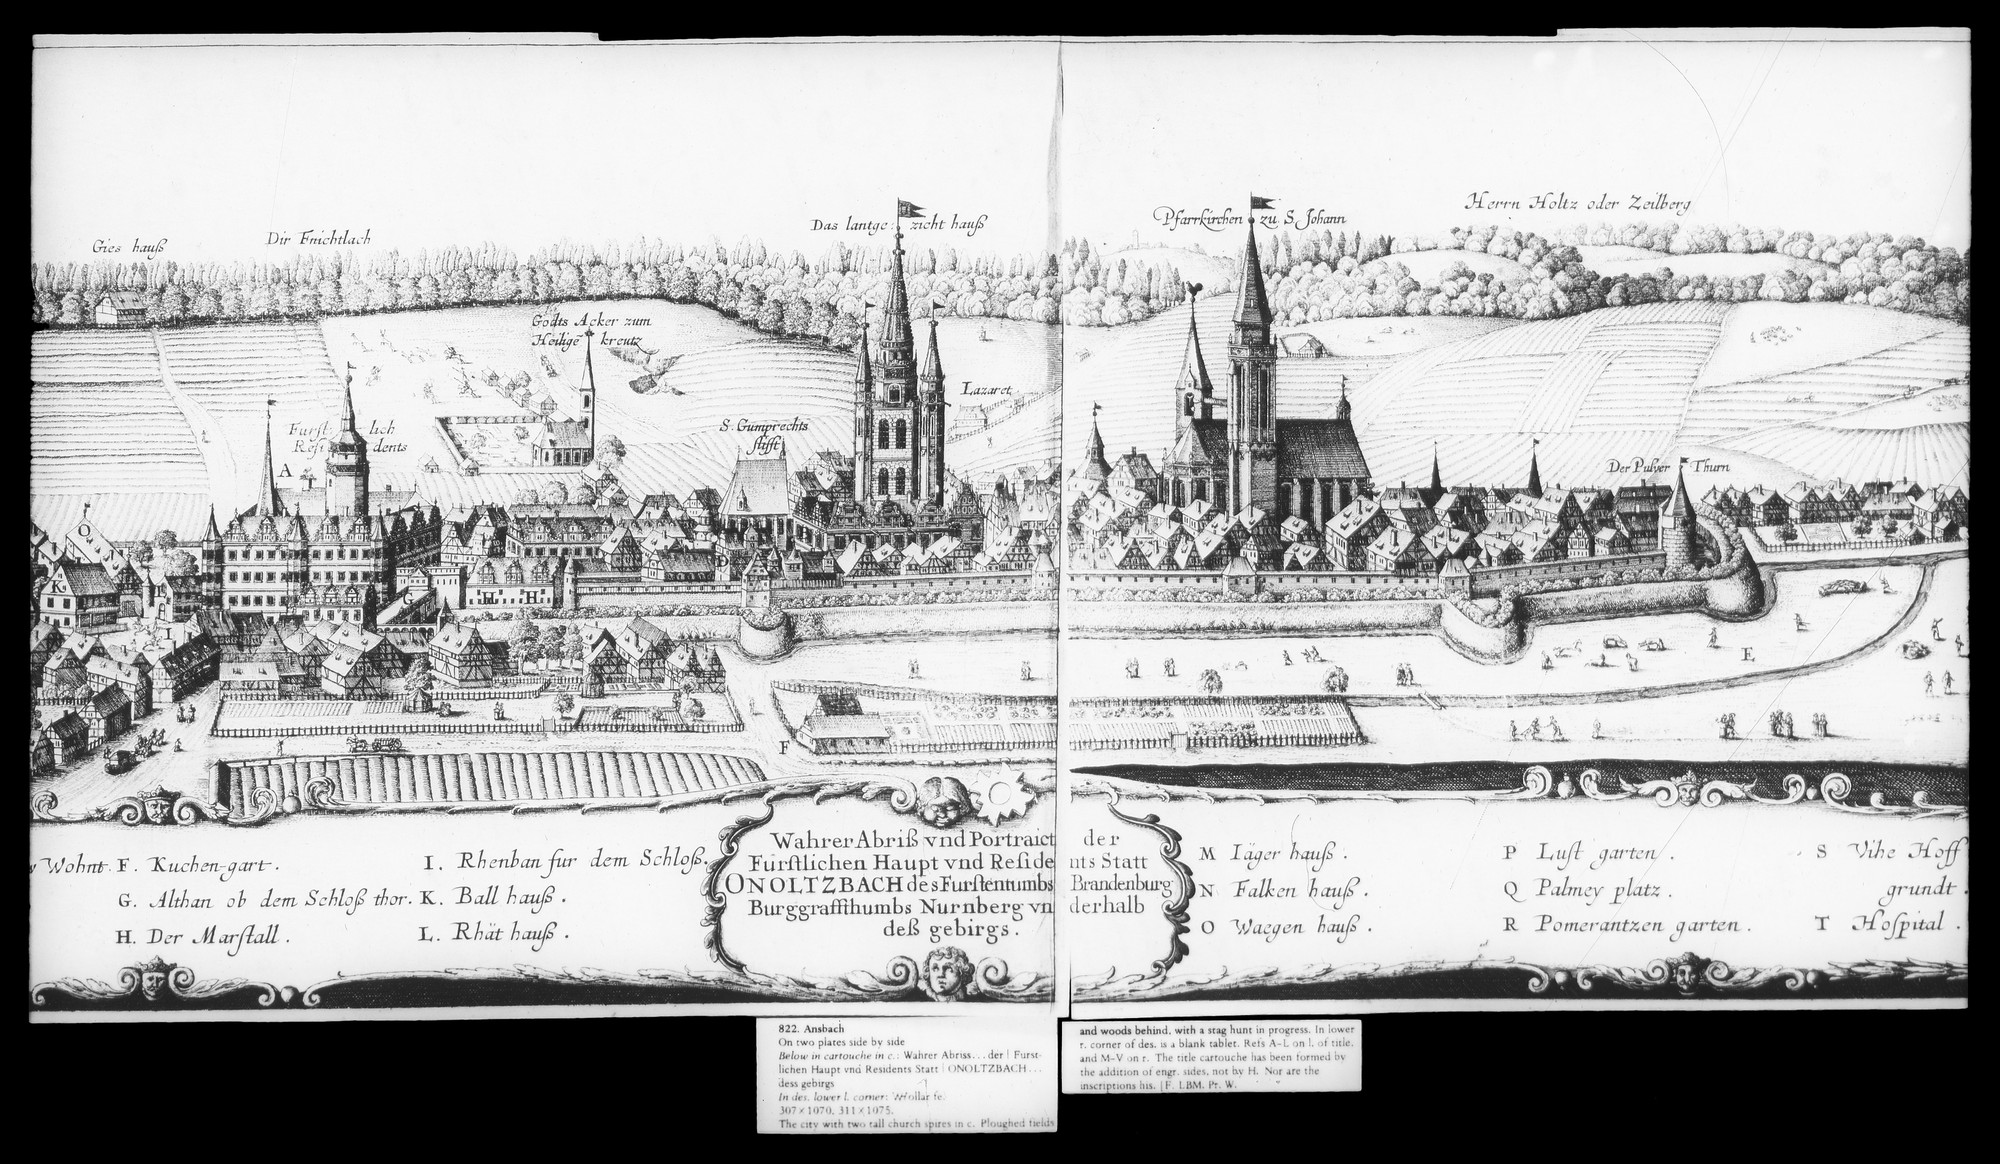 Gies hauß
Dir Fnichtlach
Das lantge: zicht hauß
Pfarrkirchen zu S. Johann
Herrn Holtz oder Zeilberg
Godts Acker zum
Heilige kreutz
Lazaret
Furst lich
Resi dents
A
S. Gumprechts
stifft
Der Pulver Thurn
O
K
D
G
H H
I
E
F
Wohnt F. Kuchen-gart.
G. Althan ob dem Schloß thor.
H. Der Marstall.
I. Rhenban fur dem Schloß.
K. Ball hauß.
L. Rhät hauß.
Wahrer Abriß vnd Portraict der
Furstlichen Haupt vnd Reside nts Statt
ONOLTZBACH des Furstentumbs Brandenburg
Burggraffthumbs Nurnberg vn derhalb
deß gebirgs.
M Iäger hauß.
N Falken hauß.
O Waegen hauß.
P Lust garten.
Q Palmey platz.
R Pomerantzen garten.
S Vihe Hoff
grundt.
T Hospital.
822. Ansbach
On two plates side by side
Below in cartouche in c.: Wahrer Abriss...der | Furst-
lichen Haupt vnd Residents Statt | ONOLTZBACH...
dess gebirgs
In des. lower l. corner: WHollar fe.
307×1070, 311×1075.
The city with two tall church spires in c. Ploughed fields
and woods behind, with a stag hunt in progress. In lower
r. corner of des. is a blank tablet. Refs A–L on l. of title,
and M–V on r. The title cartouche has been formed by
the addition of engr. sides, not by H. Nor are the
inscriptions his. [F. LBM. Pr. W.